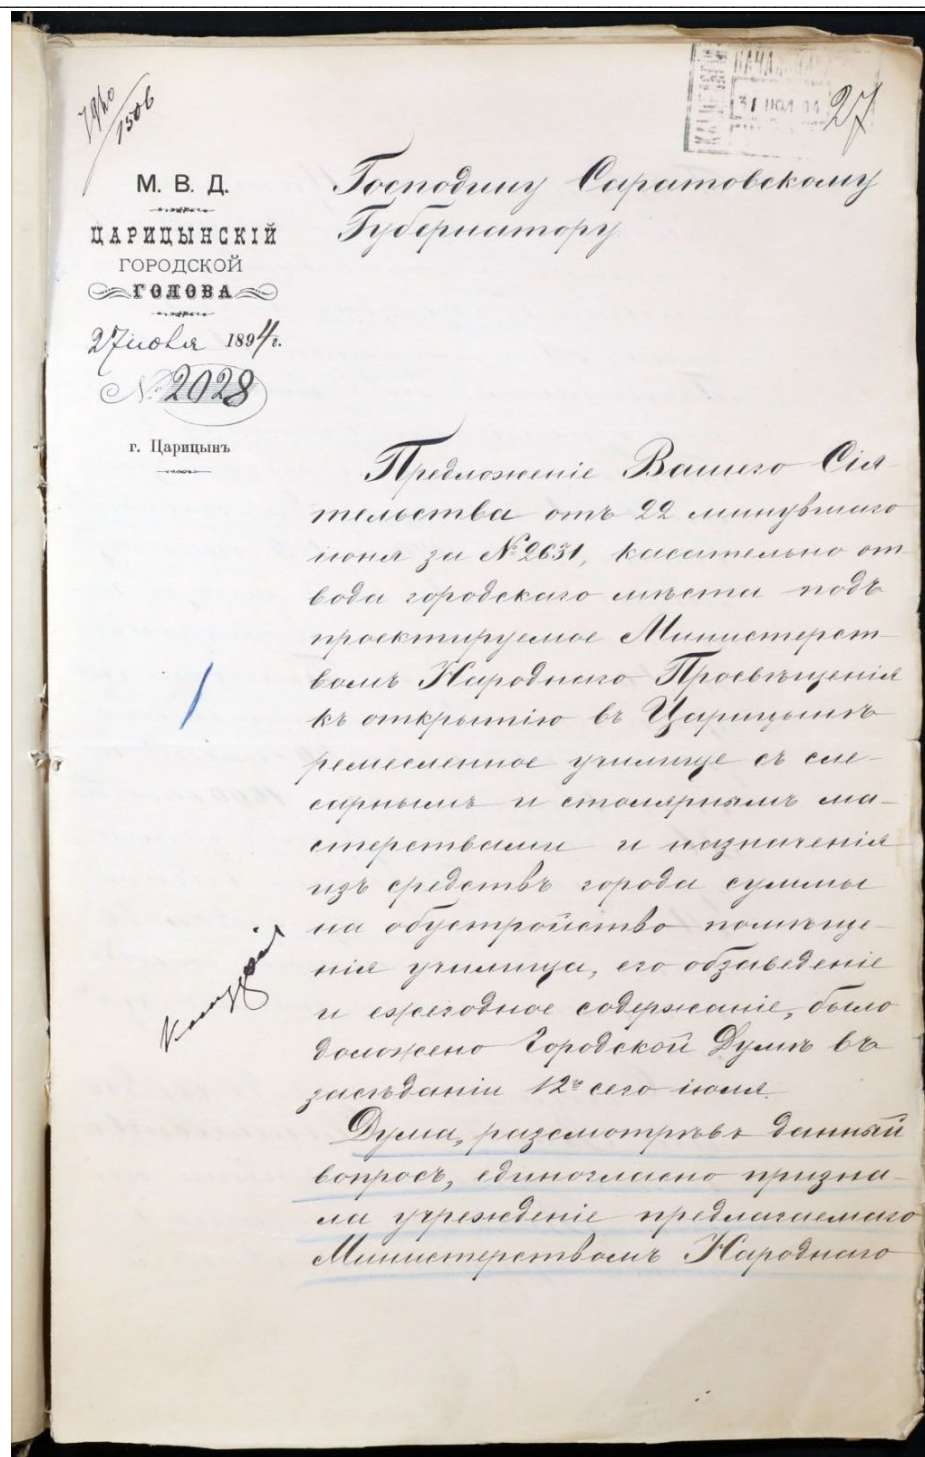 7920/1506
НАЧАЛ
31 ІЮЛ 94
27
М. В. Д.
ЦАРИЦЫНСКІЙ
ГОРОДСКОЙ
ГОЛОВА
27 іюля 1894 г.
№ 2028
г. Царицынъ
Господину Саратовскому
Губернатору
Предложеніе Вашего Сія-
тельства отъ 22 минувшаго
іюня за № 2631, касательно от
вода городскаго мѣста подъ
проектируемое Министерст-
вомъ Народнаго Просвѣщенія
къ открытію въ Царицынѣ
ремесленное училище съ сле-
сарнымъ и столярнымъ ма-
стерствами и назначенія
изъ средствъ города суммы
на обустройство помѣще-
нія училища, его обзаведеніе
и ежегодное содержаніе, было
доложено Городской Думѣ въ
засѣданіи 12го сего іюля.
Дума, разсмотрѣвъ данный
вопросъ, единогласно призна-
ла учрежденіе предлагаемаго
Министерствомъ Народнаго